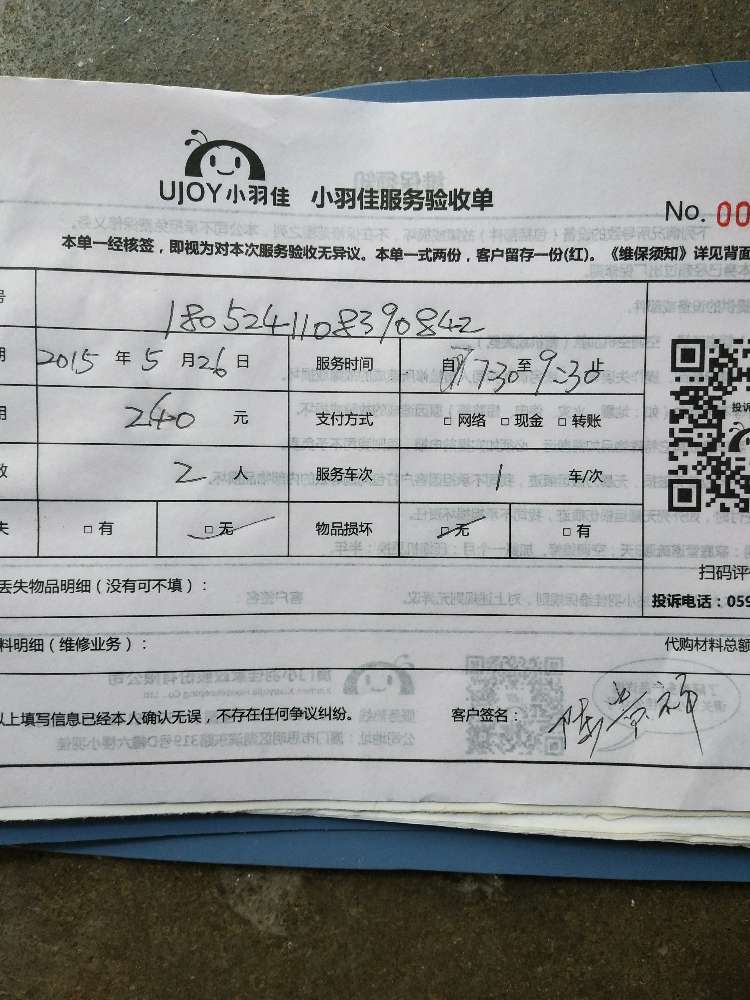 UJOY小羽佳 小羽佳服务验收单
No. 00
本单一经核签，即视为对本次服务验收无异议。本单一式两份，客户留存一份(红)。《维保须知》详见背面
号 1805241108390842
期 2015 年 5 月 26 日 服务时间 自 17:30 至 9:30 止
用 240 元 支付方式 □ 网络 □ 现金 □ 转账
投诉
数 2 人 服务车次 1 车/次
失 □ 有 □ 无 物品损坏 □ 无 □ 有
扫码评
丢失物品明细（没有可不填）：
投诉电话：059
料明细（维修业务）： 代购材料总额
以上填写信息已经本人确认无误，不存在任何争议纠纷。 客户签名：